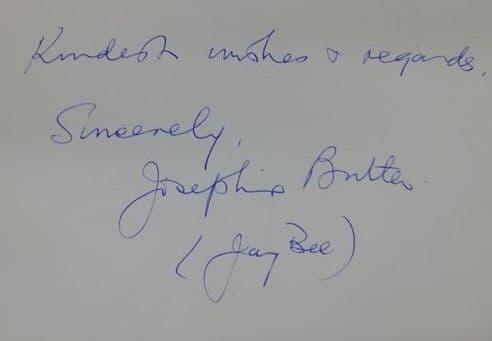 Kindest wishes & regards,
Sincerely,
Josephine Butler
(Jay Bee)